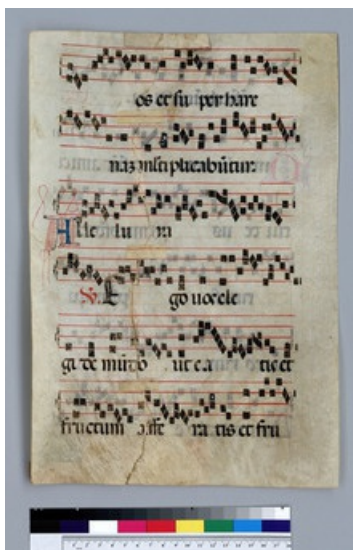 os et su per hare
naz m̄lti plicabūtur.
Alle lu ia
V. E go vos ele
gi de mūdo ut e a tis et
fructum affe ra tis et fru